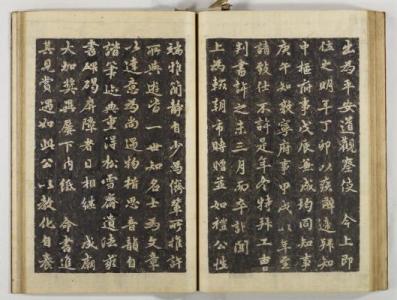 出為平安道觀察使 今上即
位之明年丁卯以辭還拜知
中樞府事戊辰兼成均同知事
庚午知敦寧府事甲戌以年至
請致仕不許是年冬特拜工曹
判書許之三月而卒訃聞
上為輟朝市賻葬如禮公性
端雅簡靜自少為儕輩所推許
所與遊皆一世知名士為文章
以達意為尚遇物思音韻自
諧筆迹典重得松雪齋遺法
書碑碣屏障者日相繼 成廟
大加奬異屢下內紙 命書進
其見賞遇如此公以教化自養